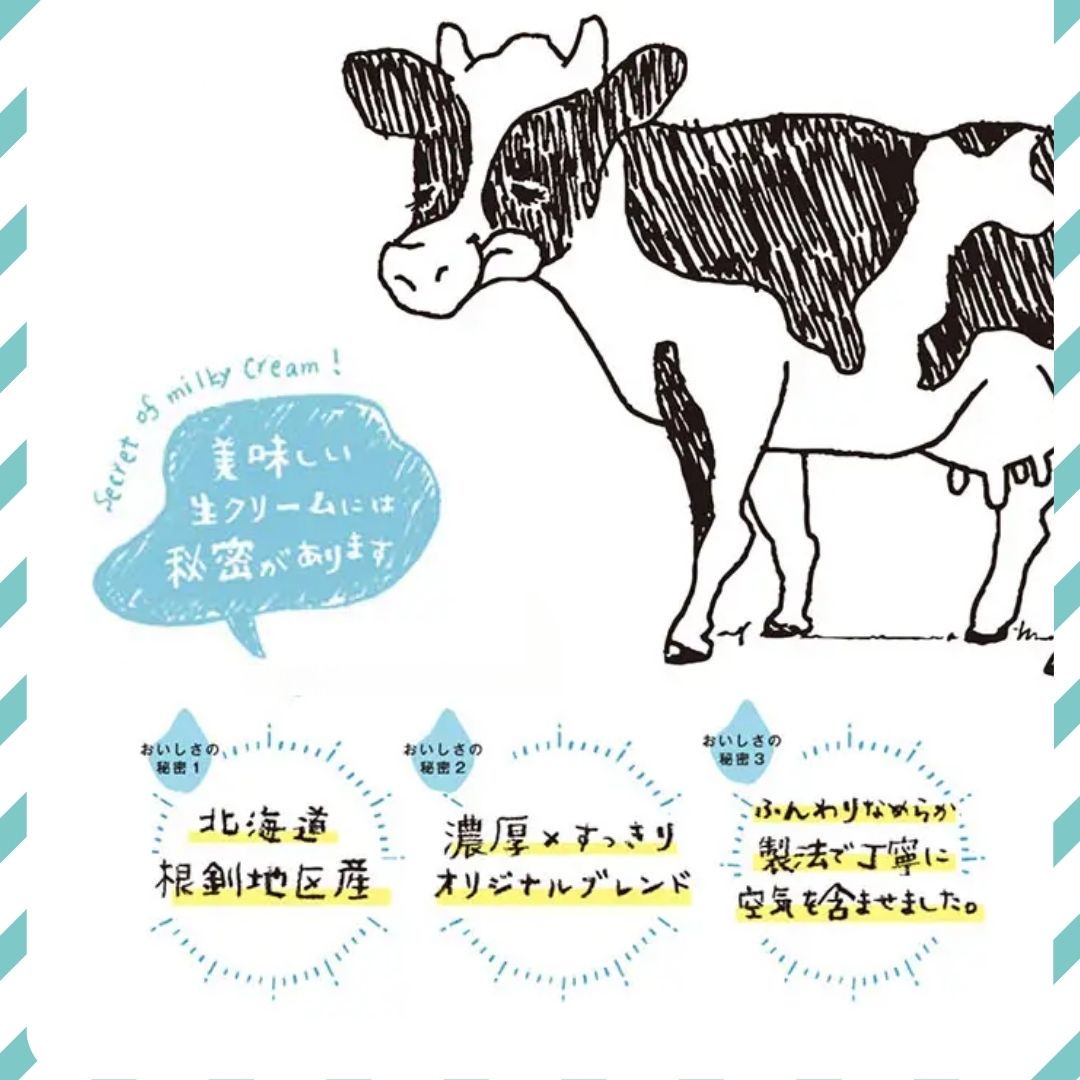 Secret of milky cream!
美味しい
生クリームには
秘密があります
おいしさの
秘密1
北海道
根釧地区産
おいしさの
秘密2
濃厚×すっきり
オリジナルブレンド
おいしさの
秘密3
ふんわりなめらか
製法で丁寧に
空気を含ませました。